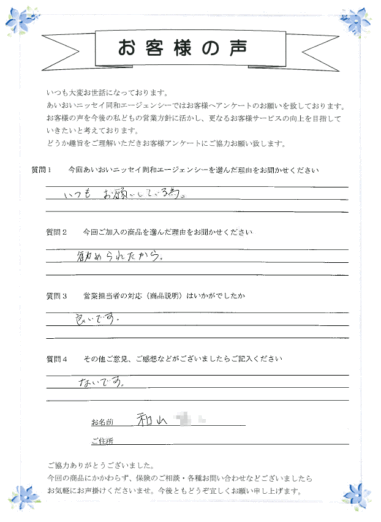 お客様の声
いつも大変お世話になっております。
あいおいニッセイ同和エージェンシーではお客様へアンケートのお願いを致しております。
お客様の声を今後の私どもの営業方針に活かし、更なるお客様サービスの向上を目指して
いきたいと考えております。
どうか趣旨をご理解いただきお客様アンケートにご協力お願い致します。
質問1 今回あいおいニッセイ同和エージェンシーを選んだ理由をお聞かせください
いつも お願いしている為。
質問2 今回ご加入の商品を選んだ理由をお聞かせください
勧められたから。
質問3 営業担当者の対応（商品説明）はいかがでしたか
良いです。
質問4 その他ご意見、ご感想などがございましたらご記入ください
ないです。
お名前 和山
ご住所
ご協力ありがとうございました。
今回の商品にかかわらず、保険のご相談・各種お問い合わせなどございましたら
お気軽にお声掛けくださいませ。今後ともどうぞ宜しくお願い申し上げます。